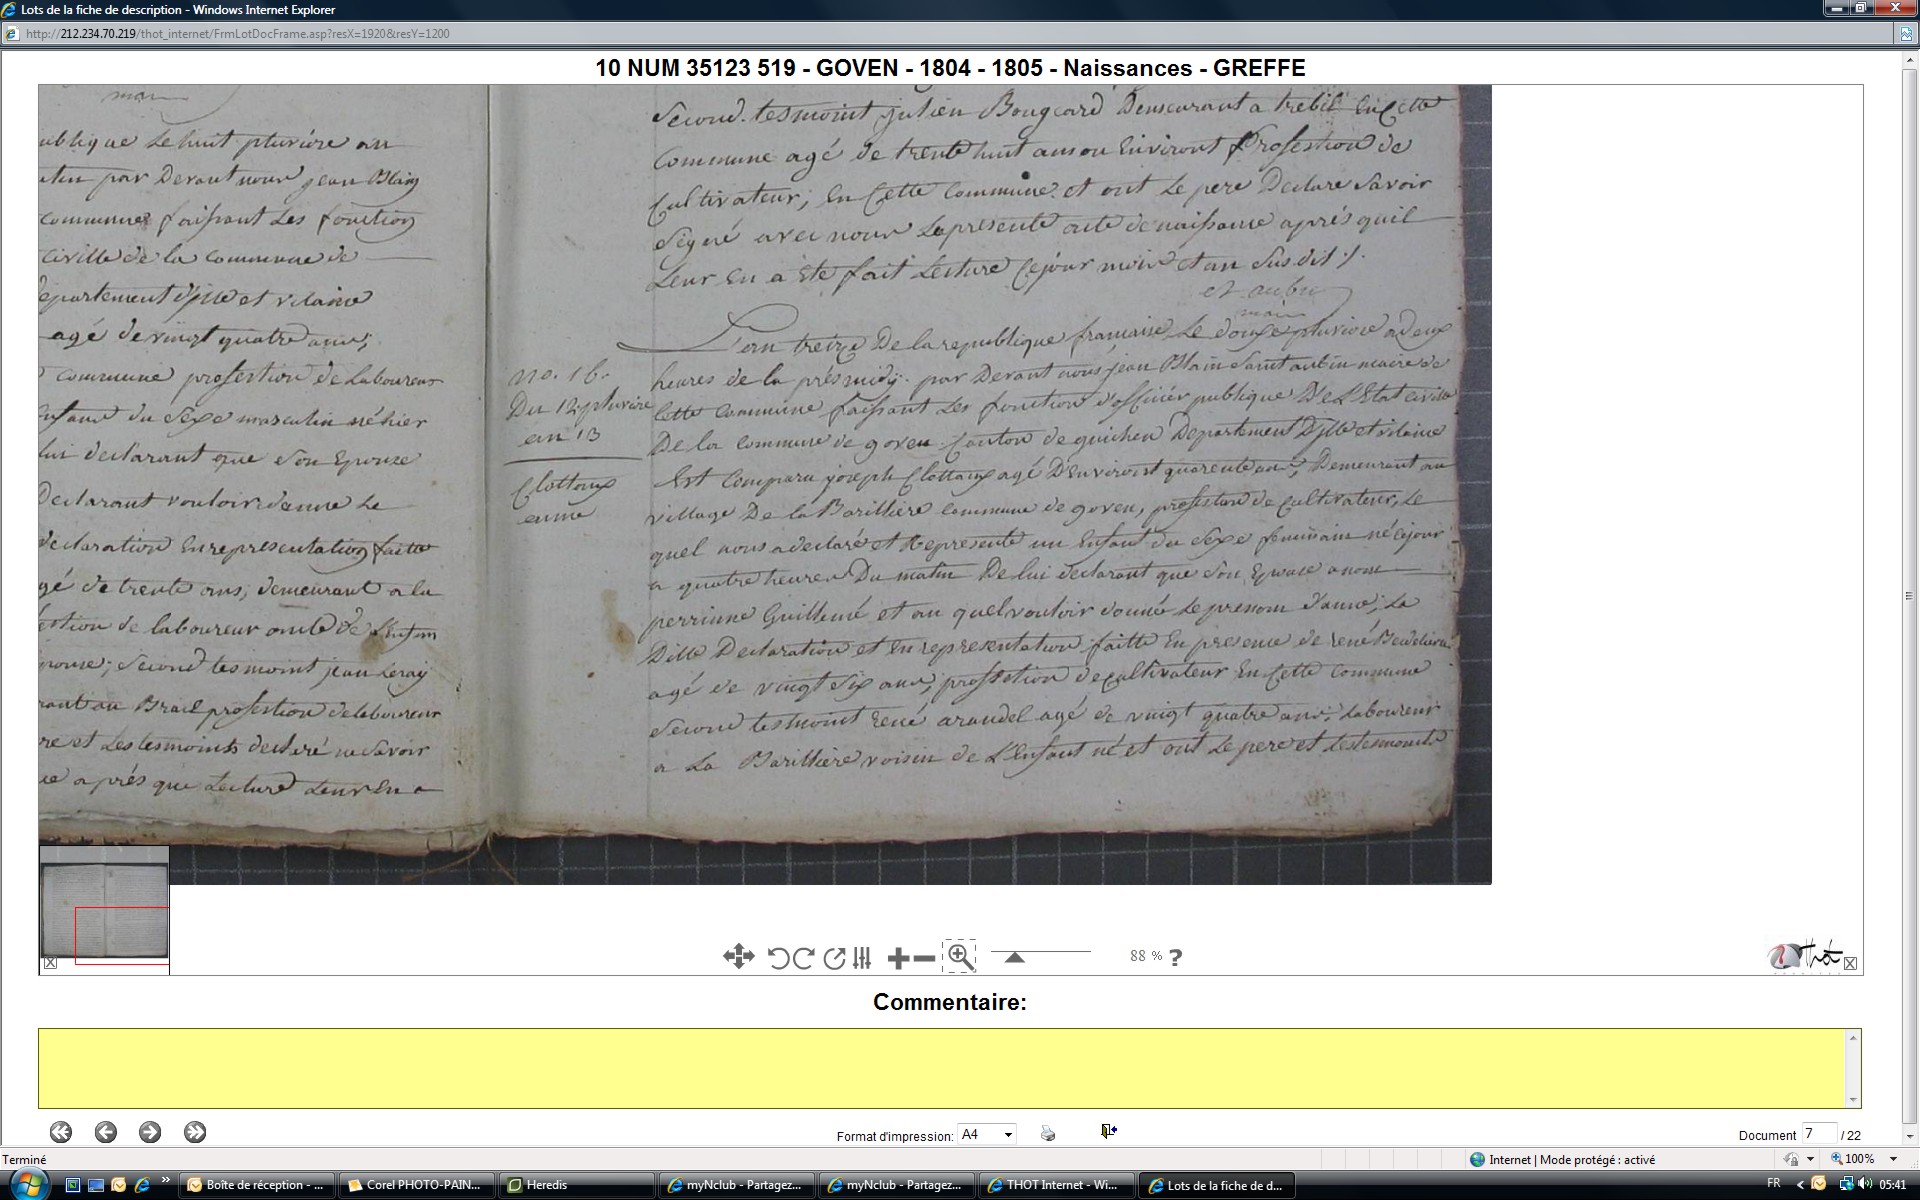 Lots de la fiche de description - Windows Internet Explorer
http://212.234.70.219/thot_internet/FrmLotDocFrame.asp?resX=1920&resY=1200
10 NUM 35123 519 - GOVEN - 1804 - 1805 - Naissances - GREFFE
ublique Le huit pluviôse an
par Devant nous jean Blain
commune faissant Les fonction
Civille de la Commune de
epartement D'jlle et vilaine
agé de vingt quatre ans;
commune profestion de Laboureur
enfant du Sexe masculin né hier
lui declarant que Son Epouse
Declarant vouloir donne Le
declaration En representation faitte
gé de trente ans; demeurant a la
estion de laboureur oncle de L'enfan
pouse; Second tesmoint jean Leray
rant au Brael profestion de laboureur
re et Les tesmoints declaré ne Savoir
ue aprés que Lecture Leur En a
Second tesmoint julien Bougeard Demeurant a trebil En Cette
Commune agé de trente huit ans ou Environt Profestion de
Cultivateur, En Cette Commune et ont Le pere Declare Savoir
Signé avec nous Le presente acte de naissance aprés quil
Leur En a Ete fait Lecture Ce jour mois et an Sus dit ./.
st aubin
maire
no. 16.
Du 12 pluviose
an 13
Clottaux
anne
L'an treize De la republique francaise, Le douze pluviose a deux
heures de la prés midy. par Devant nous jean Blain Saint aubin maire de
Cette Commune faissant Les fonction d'officiér publique De L'Etat civille
De la Commune de goven Canton de guichen Departement D'jlle et vilaine
Est Comparu joseph Clottaux agé D'environt quarente ans, Demeurant au
village De la Barilliere commune de goven, profestion de Cultivateur, Le
quel nous a declaré et Represente un Enfant du Sexe feminain né Cejour
a quatre heures Du matin De lui declarant que Son Epouse a nom
perrinne Guillemé et au quel vouloir donné Le prenom D'anne; La
Ditte Declaration et En representation faitte En presence de rené
agé de vingt Six ans, profestion de cultivateur En Cette Commune
Second tesmoint René arondel agé de vingt quatre ans, Laboureur
a La Barilliere voisin de L'Enfant né et ont Le pere et Les tesmoints
88 %
?
Thot
Commentaire:
Format d'impression: A4
Document 7 / 22
Terminé
Internet | Mode protégé : activé
100%
Boîte de réception - ...
Corel PHOTO-PAIN...
Heredis
myNclub - Partagez...
myNclub - Partagez...
THOT Internet - Wi...
Lots de la fiche de d...
FR
05:41